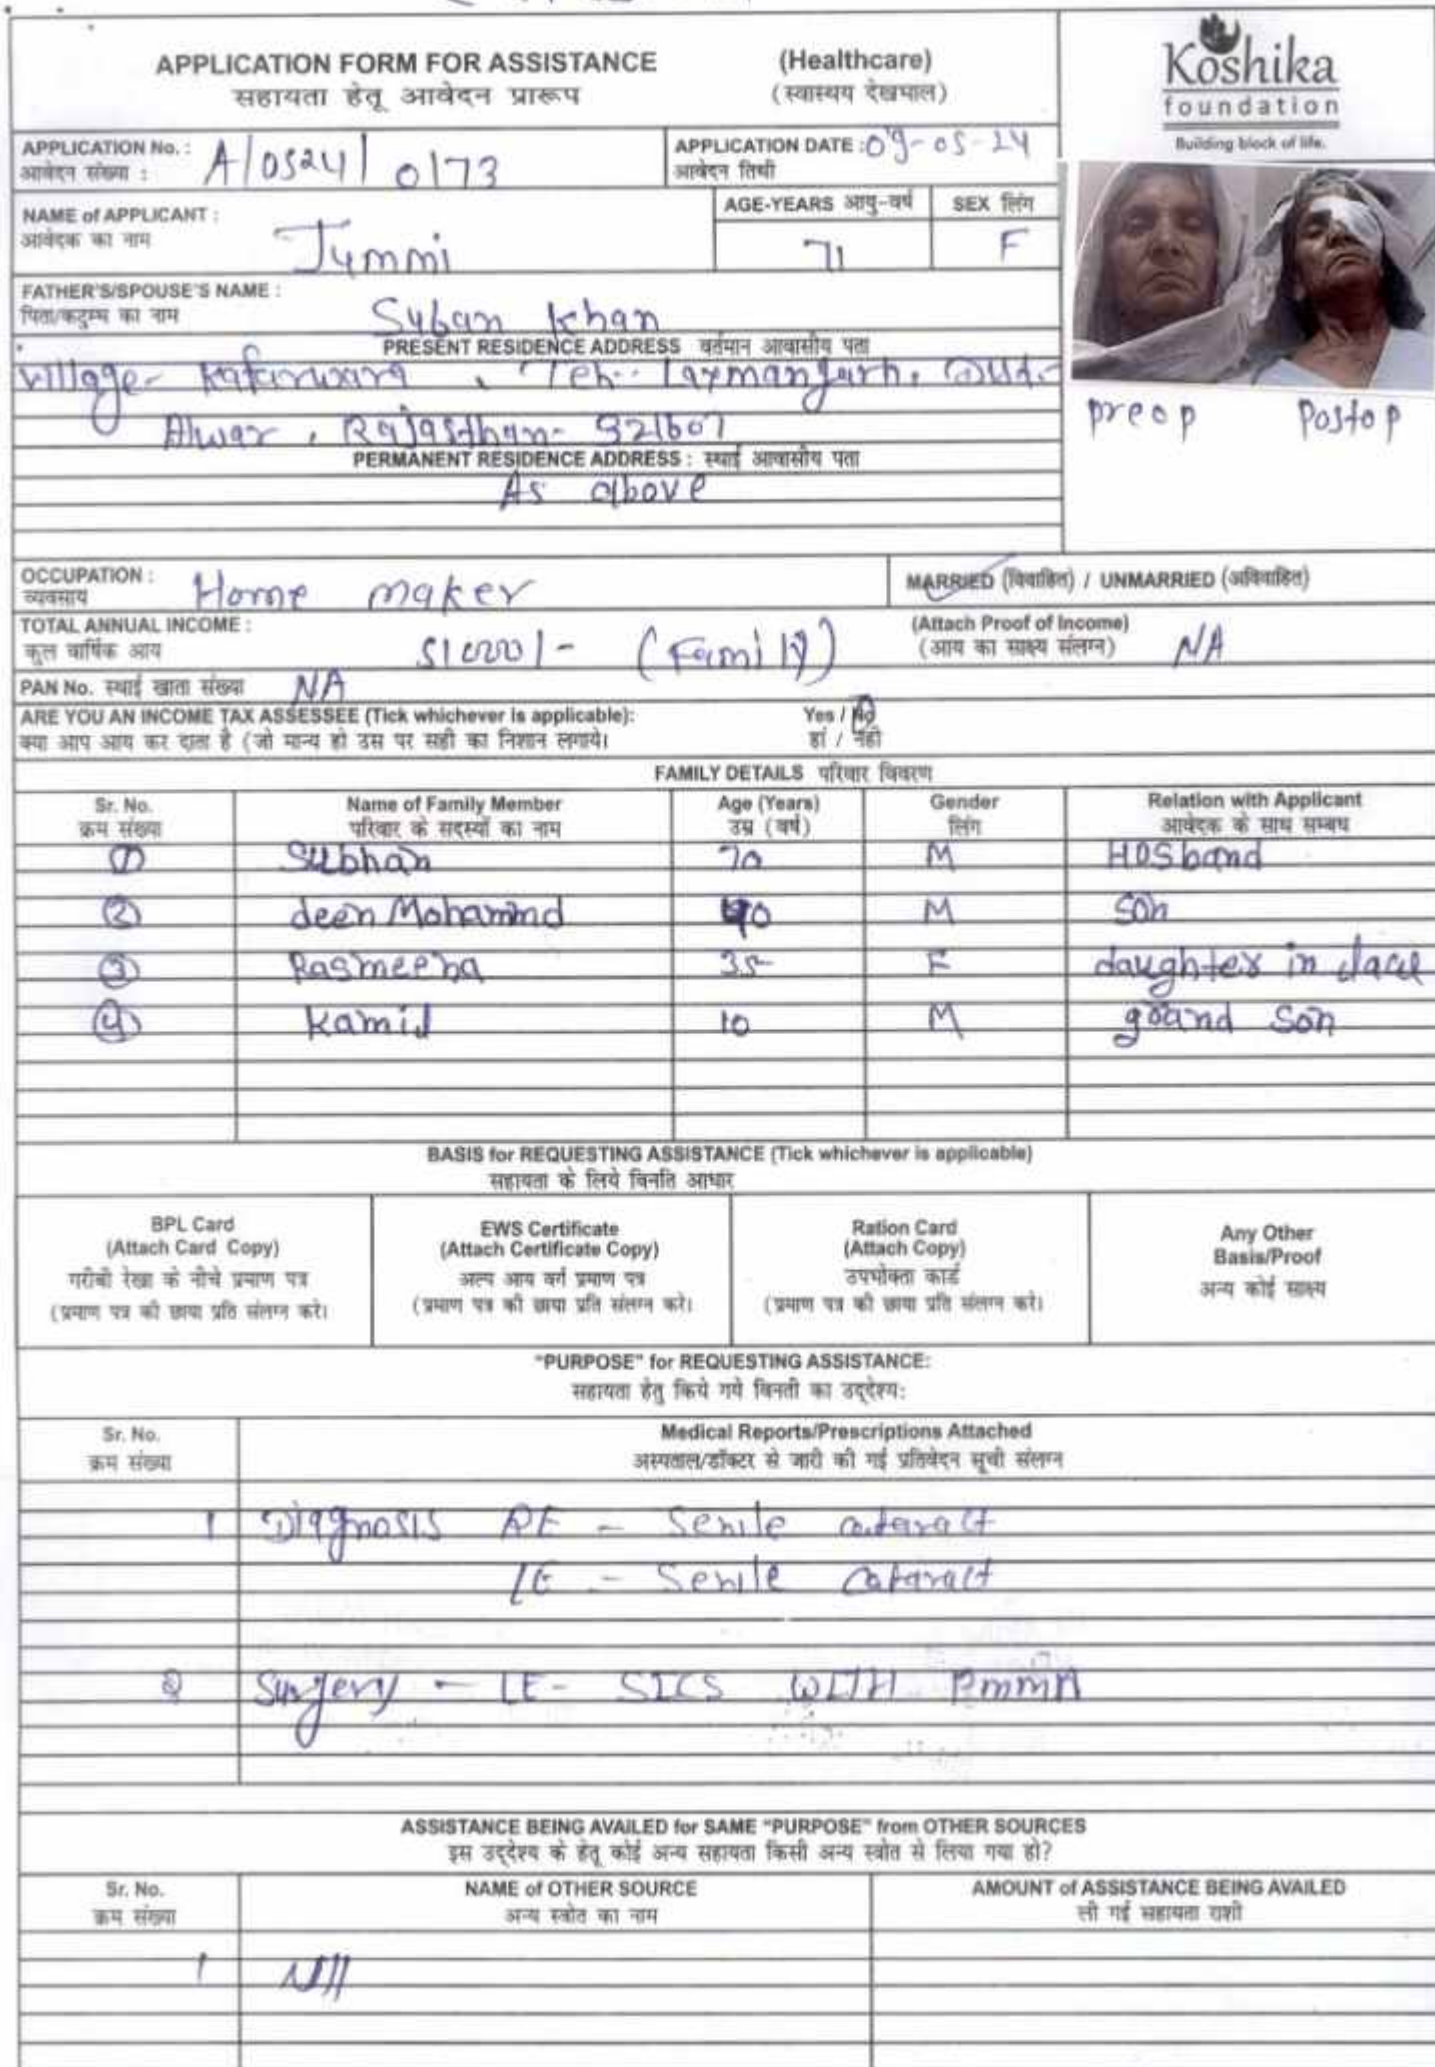 APPLICATION FORM FOR ASSISTANCE (Healthcare)
सहायता हेतू आवेदन प्रारूप (स्वास्थय देखभाल)
Koshika
foundation
Building block of life.
APPLICATION No. : A/0524/0173
आवेदन संख्या :
APPLICATION DATE : 09-05-24
आवेदन तिथी
NAME of APPLICANT : Jummi
आवेदक का नाम
AGE-YEARS आयु-वर्ष 71
SEX लिंग F
FATHER'S/SPOUSE'S NAME : Suban Khan
पिता/कटुम्ब का नाम
PRESENT RESIDENCE ADDRESS वर्तमान आवासीय पता
Village- , Teh:- Laxmangarh,
Alwar, Rajasthan- 321607
preop Postop
PERMANENT RESIDENCE ADDRESS : स्थाई आवासीय पता
As above
OCCUPATION : Home maker
व्यवसाय
MARRIED (विवाहित) / UNMARRIED (अविवाहित)
TOTAL ANNUAL INCOME : (Family)
कुल वार्षिक आय
(Attach Proof of Income) NA
(आय का साक्ष्य संलग्न)
PAN No. स्थाई खाता संख्या NA
ARE YOU AN INCOME TAX ASSESSEE (Tick whichever is applicable): Yes / No
क्या आप आय कर दाता है (जो मान्य हो उस पर सही का निशान लगाये। हां / नहीं
FAMILY DETAILS परिवार विवरण
Sr. No. Name of Family Member Age (Years) Gender Relation with Applicant
क्रम संख्या परिवार के सदस्यों का नाम उम्र (वर्ष) लिंग आवेदक के साथ सम्बध
① Subhan 70 M HUSband
② deen Mohammd 40 M Son
③ Rasmeena 35 F daughter in
④ Kamil 10 M grand Son
BASIS for REQUESTING ASSISTANCE (Tick whichever is applicable)
सहायता के लिये विनति आधार
BPL Card
(Attach Card Copy)
गरीबी रेखा के नीचे प्रमाण पत्र
(प्रमाण पत्र की छाया प्रति संलग्न करे।
EWS Certificate
(Attach Certificate Copy)
अल्प आय वर्ग प्रमाण पत्र
(प्रमाण पत्र की छाया प्रति संलग्न करे।
Ration Card
(Attach Copy)
उपभोक्ता कार्ड
(प्रमाण पत्र की छाया प्रति संलग्न करे।
Any Other
Basis/Proof
अन्य कोई साक्ष्य
"PURPOSE" for REQUESTING ASSISTANCE:
सहायता हेतु किये गये विनती का उद्देश्य:
Sr. No. Medical Reports/Prescriptions Attached
क्रम संख्या अस्पताल/डॉक्टर से जारी की गई प्रतिवेदन सूची संलग्न
1 Diagnosis RE - Senile cataract
LE - Senile cataract
2 Surgery - LE- SICS WITH PMMA
ASSISTANCE BEING AVAILED for SAME "PURPOSE" from OTHER SOURCES
इस उद्देश्य के हेतू कोई अन्य सहायता किसी अन्य स्त्रोत से लिया गया हो?
Sr. No. NAME of OTHER SOURCE AMOUNT of ASSISTANCE BEING AVAILED
क्रम संख्या अन्य स्त्रोत का नाम ली गई सहायता राशी
1 Nil